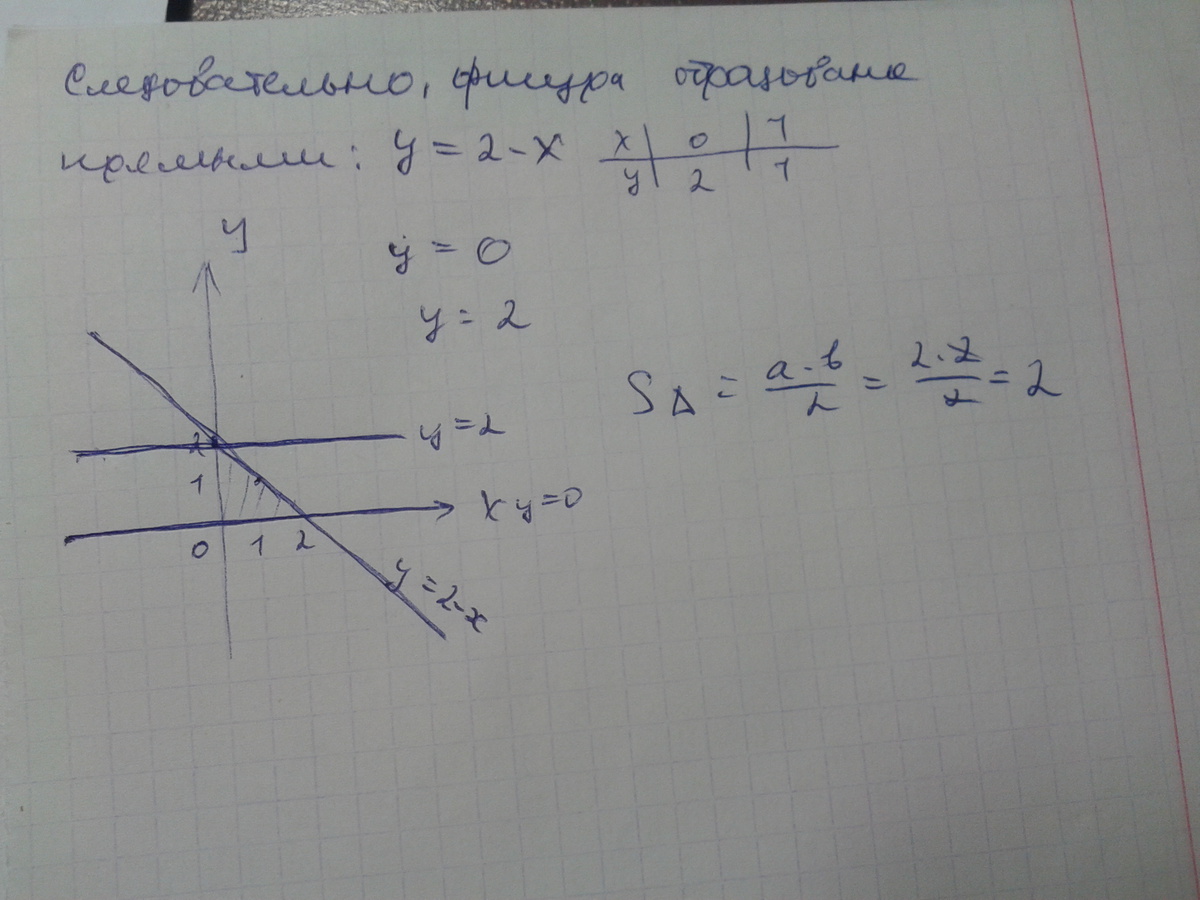 Следовательно, фигура образована
прямыми: y = 2 - x
x | 0 | 1
y | 2 | 1
y
y = 0
y = 2
S∆ = a·b/2 = 2·2/2 = 2
2
y = 2
1
x y = 0
0 1 2
y = 2-x